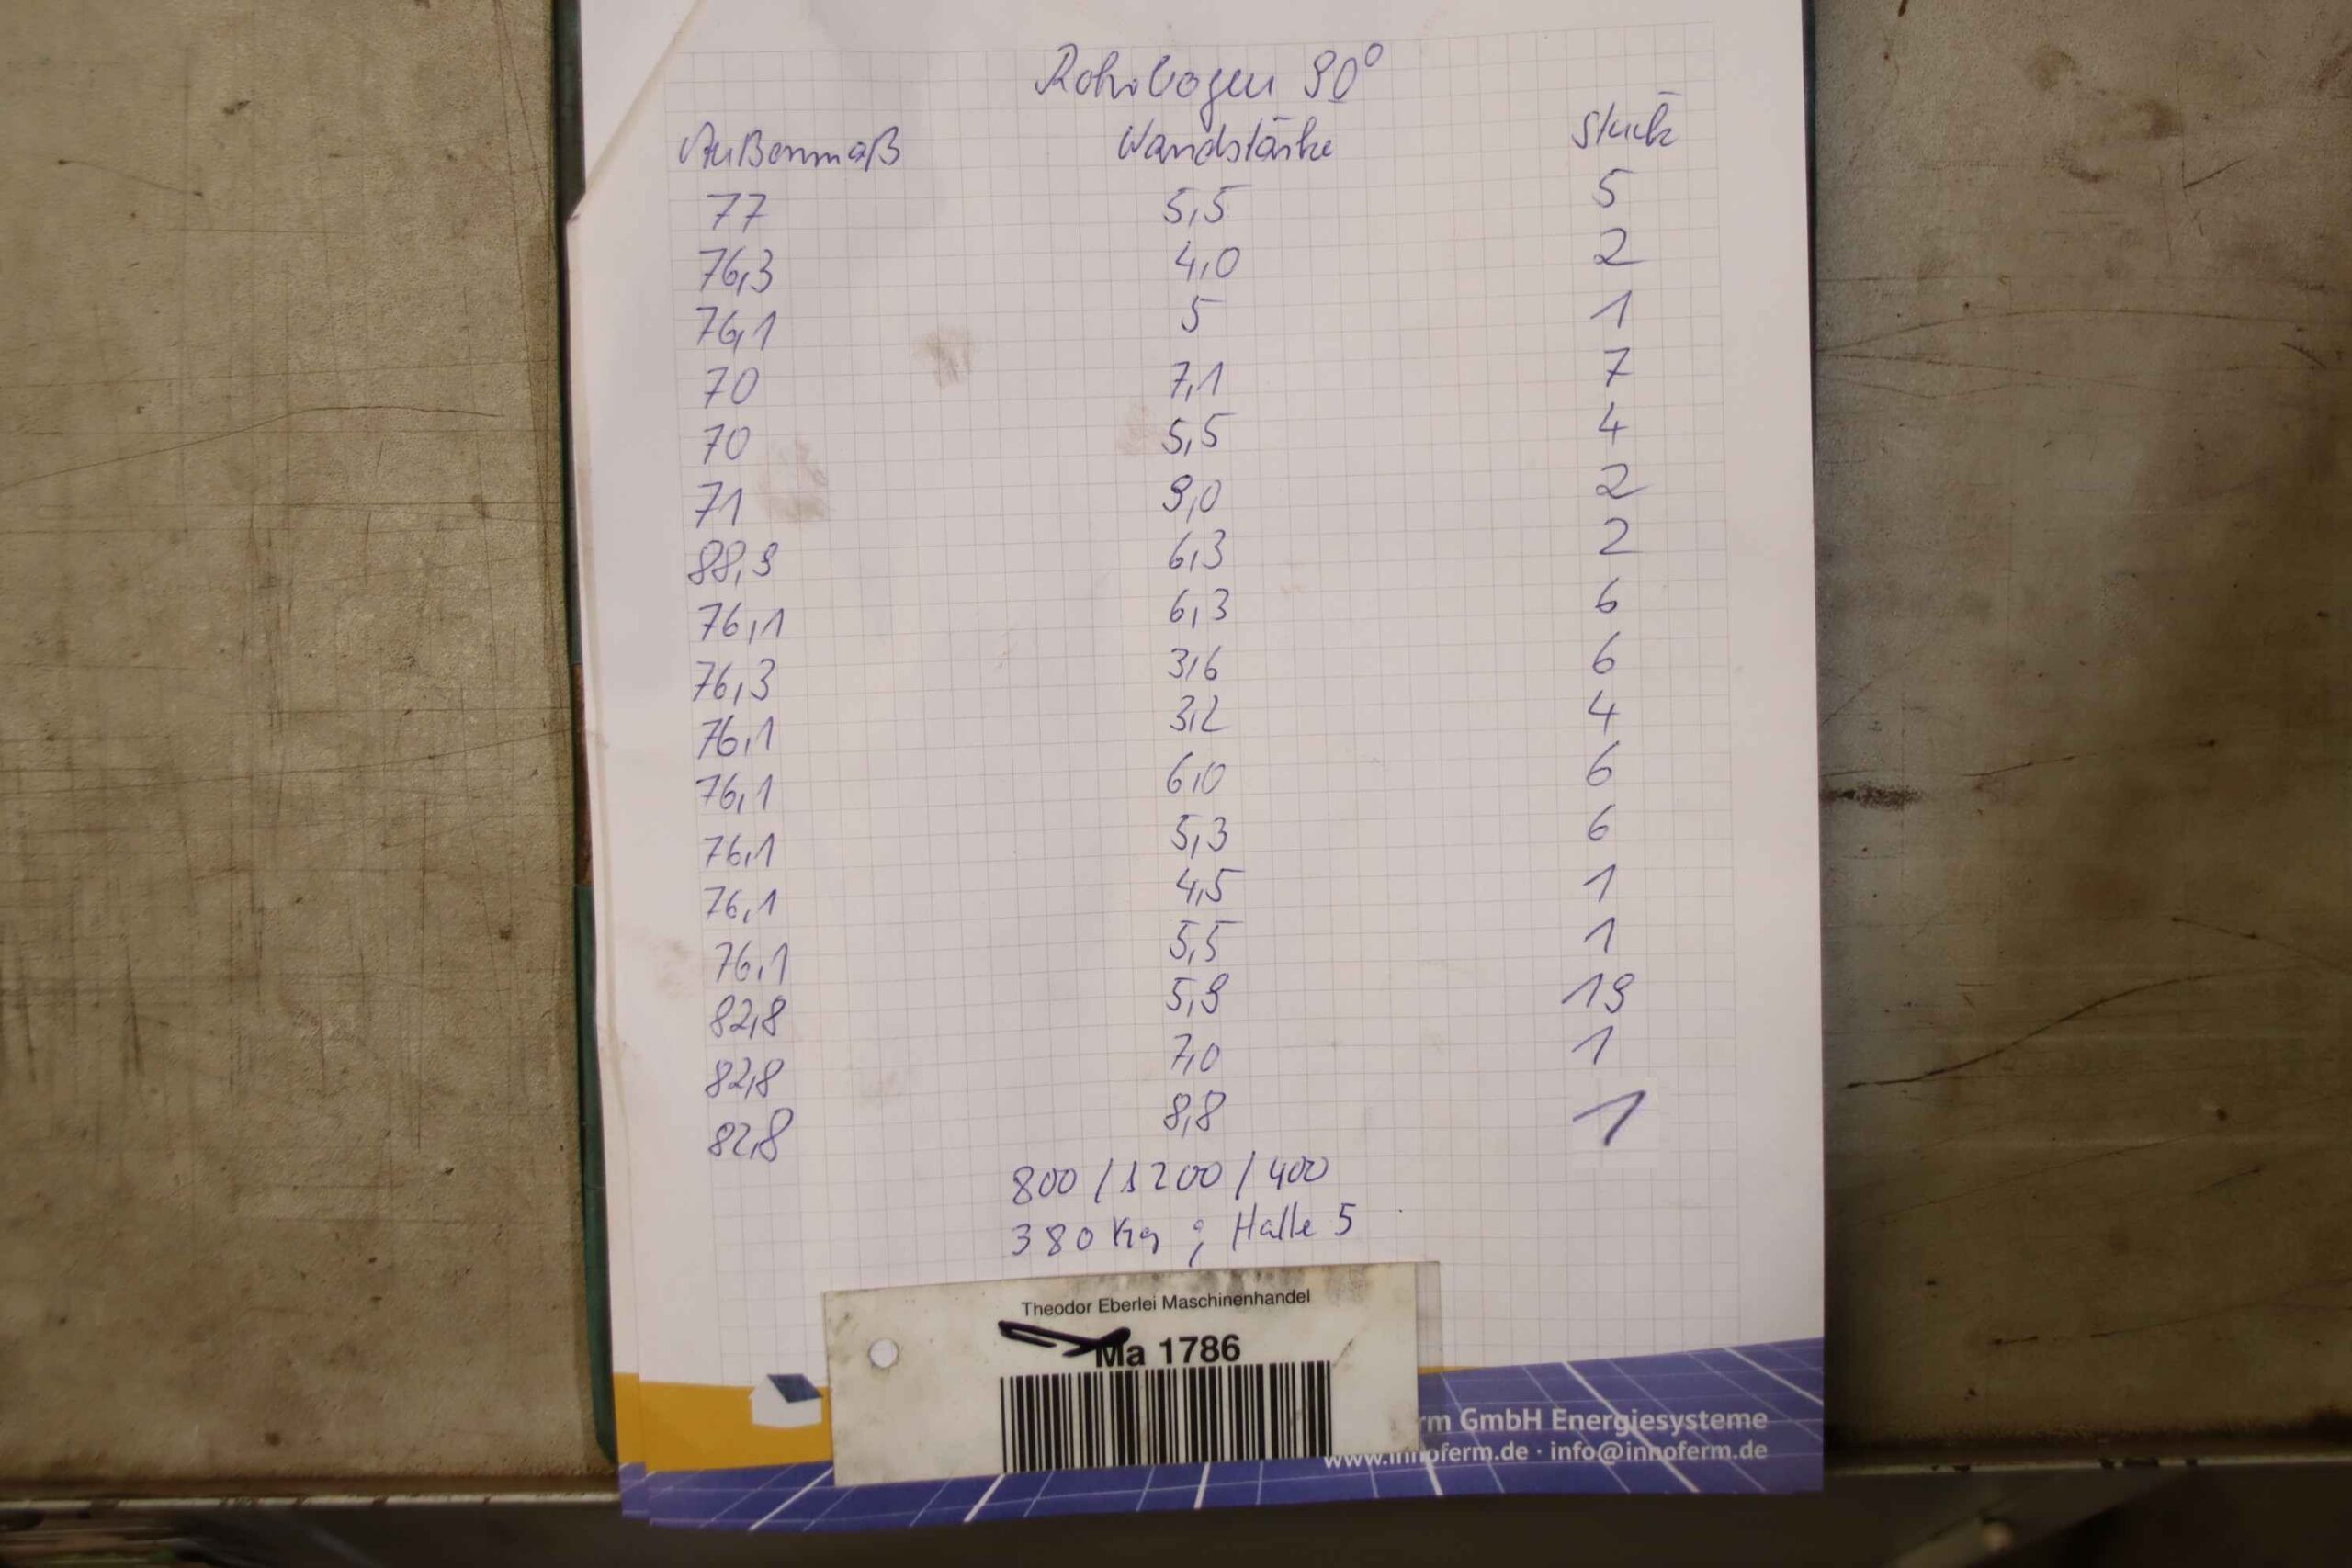 Rohrbogen 90°
Außenmaß Wandstärke Stück
77 5,5 5
76,3 4,0 2
76,1 5 1
70 7,1 7
70 5,5 4
71 9,0 2
88,9 6,3 2
76,1 6,3 6
76,3 3,6 6
76,1 3,2 4
76,1 6,0 6
76,1 5,3 6
76,1 4,5 1
76,1 5,5 1
82,8 5,9 19
82,8 7,0 1
82,8 8,8 1
800 / 1200 / 400
380 Kg ; Halle 5
Theodor Eberlei Maschinenhandel
Ma 1786
GmbH Energiesysteme
www.innoferm.de · info@innoferm.de